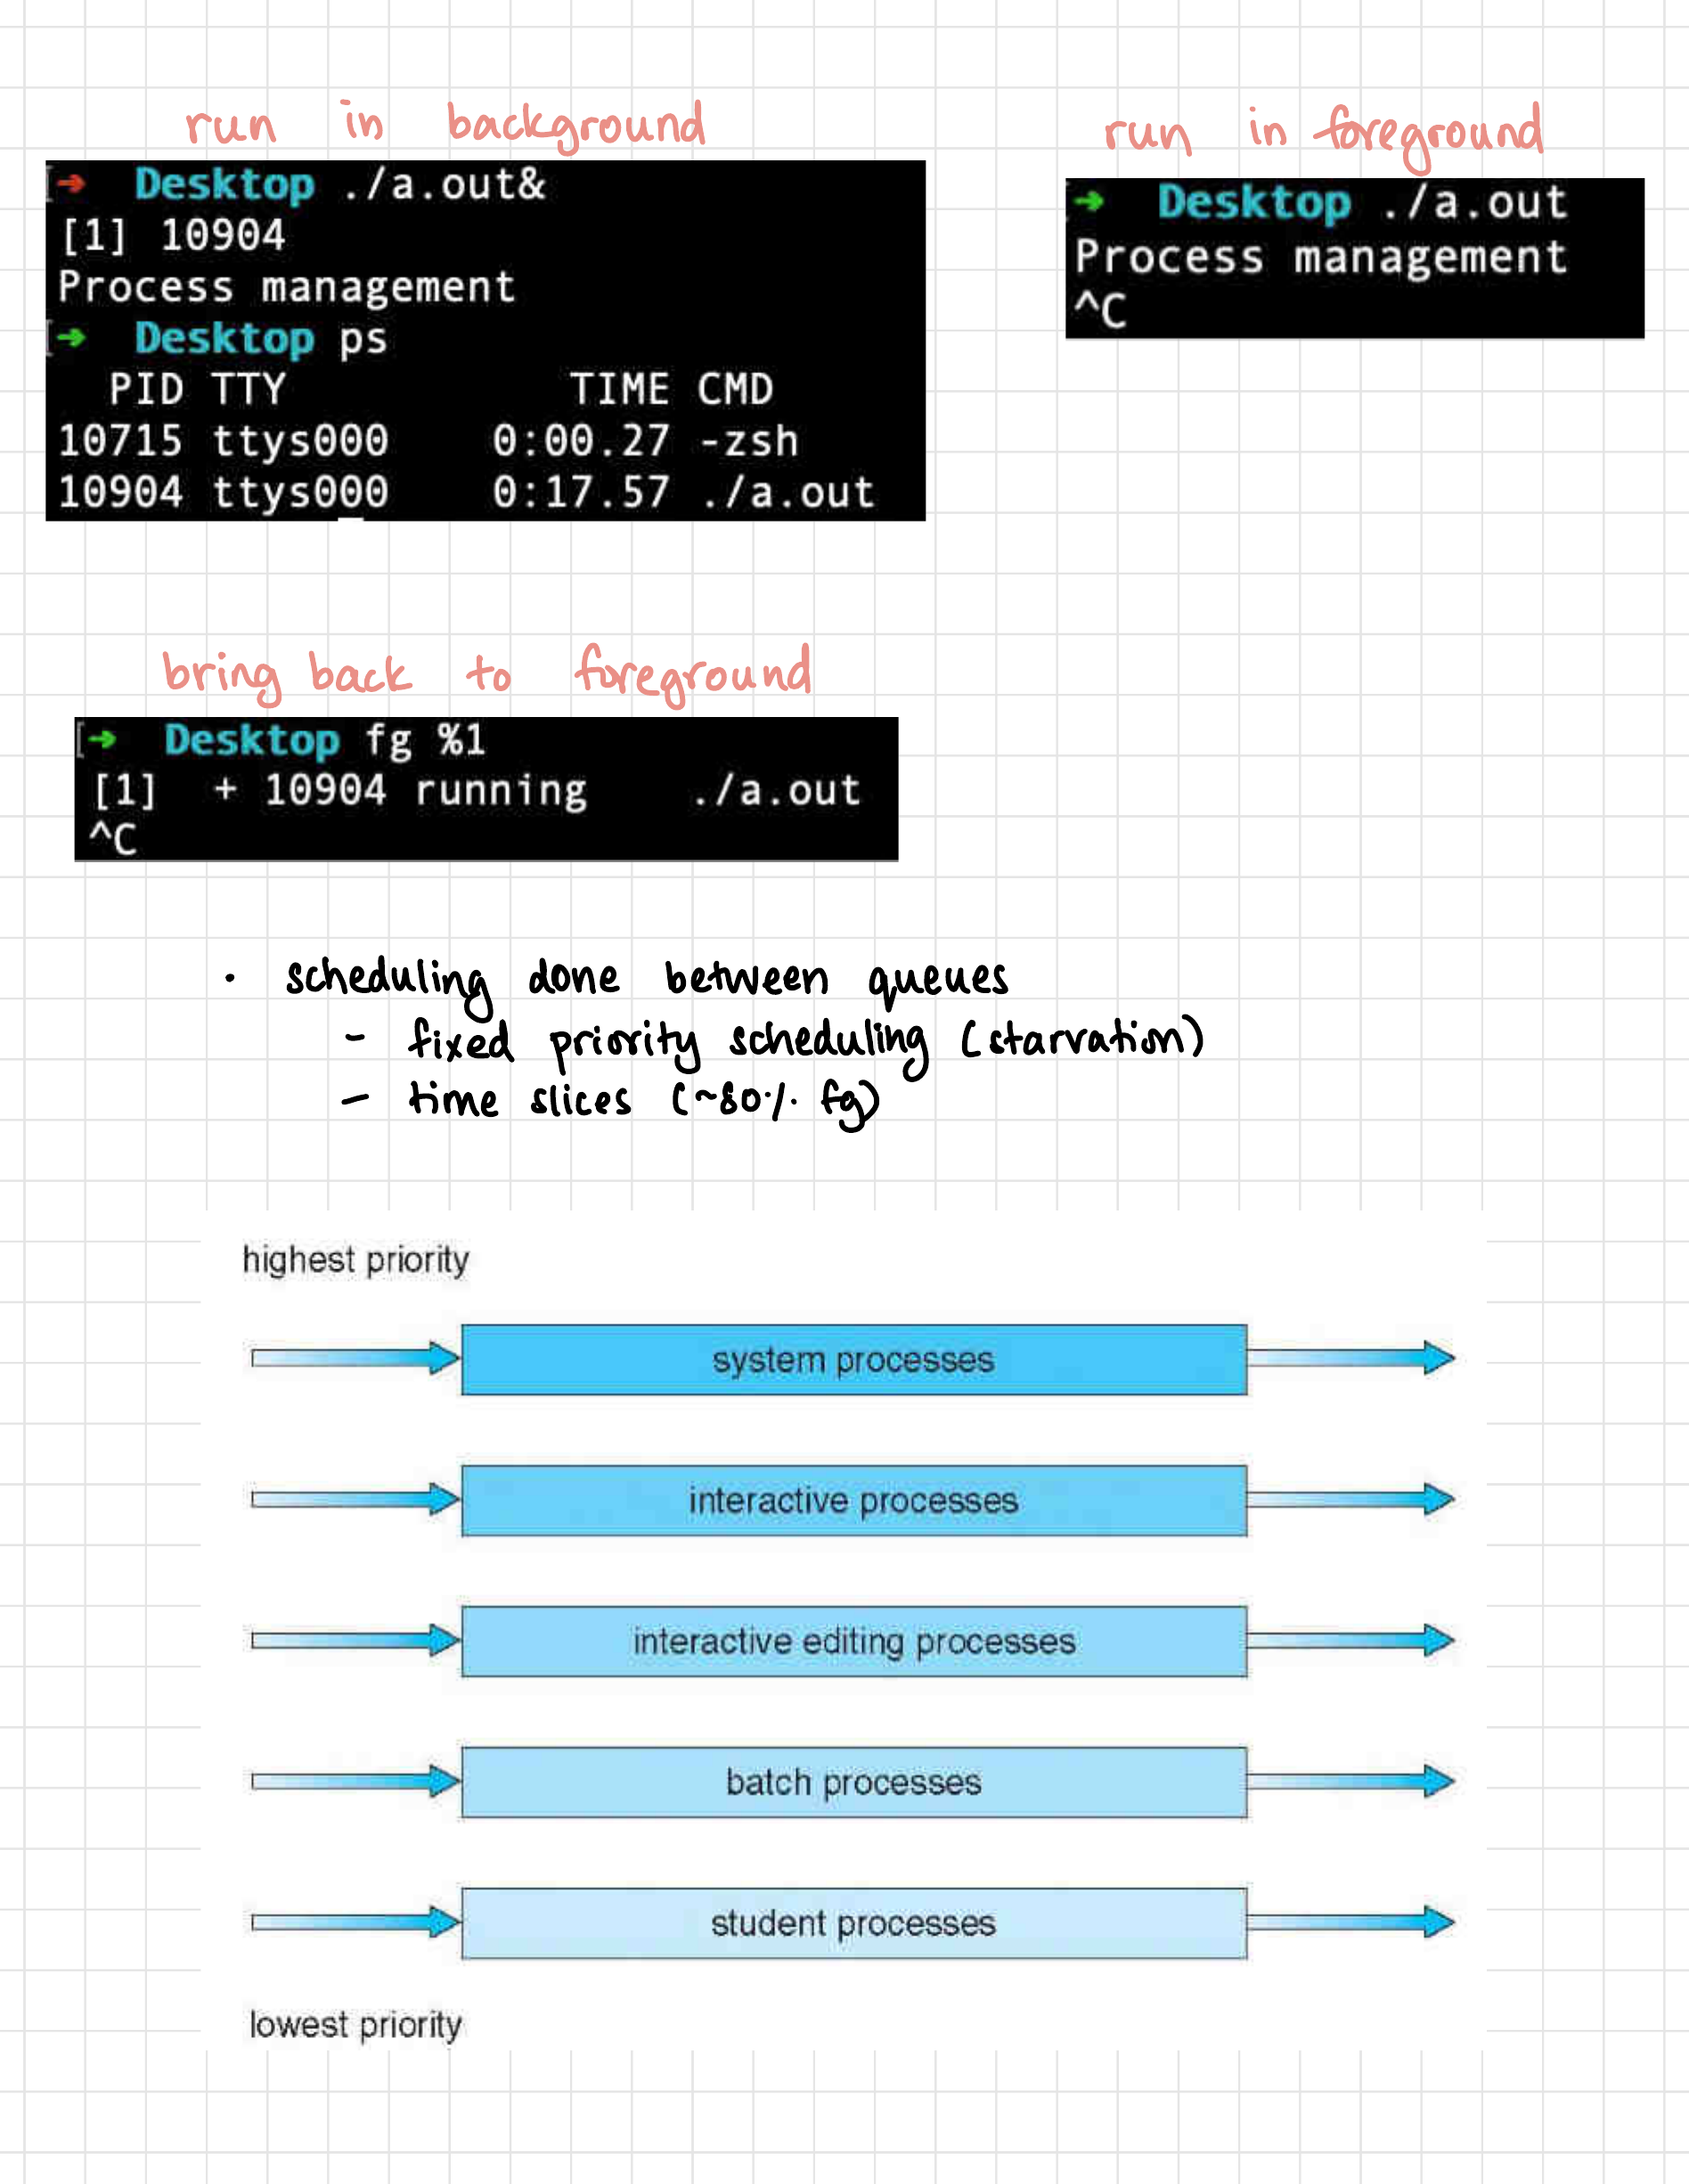 run in background
→ Desktop ./a.out&
[1] 10904
Process management
→ Desktop ps
PID TTY TIME CMD
10715 ttys000 0:00.27 -zsh
10904 ttys000 0:17.57 ./a.out
run in foreground
→ Desktop ./a.out
Process management
^C
bring back to foreground
→ Desktop fg %1
[1] + 10904 running ./a.out
^C
• scheduling done between queues
- fixed priority scheduling (starvation)
- time slices (~80% fg)
highest priority
system processes
interactive processes
interactive editing processes
batch processes
student processes
lowest priority